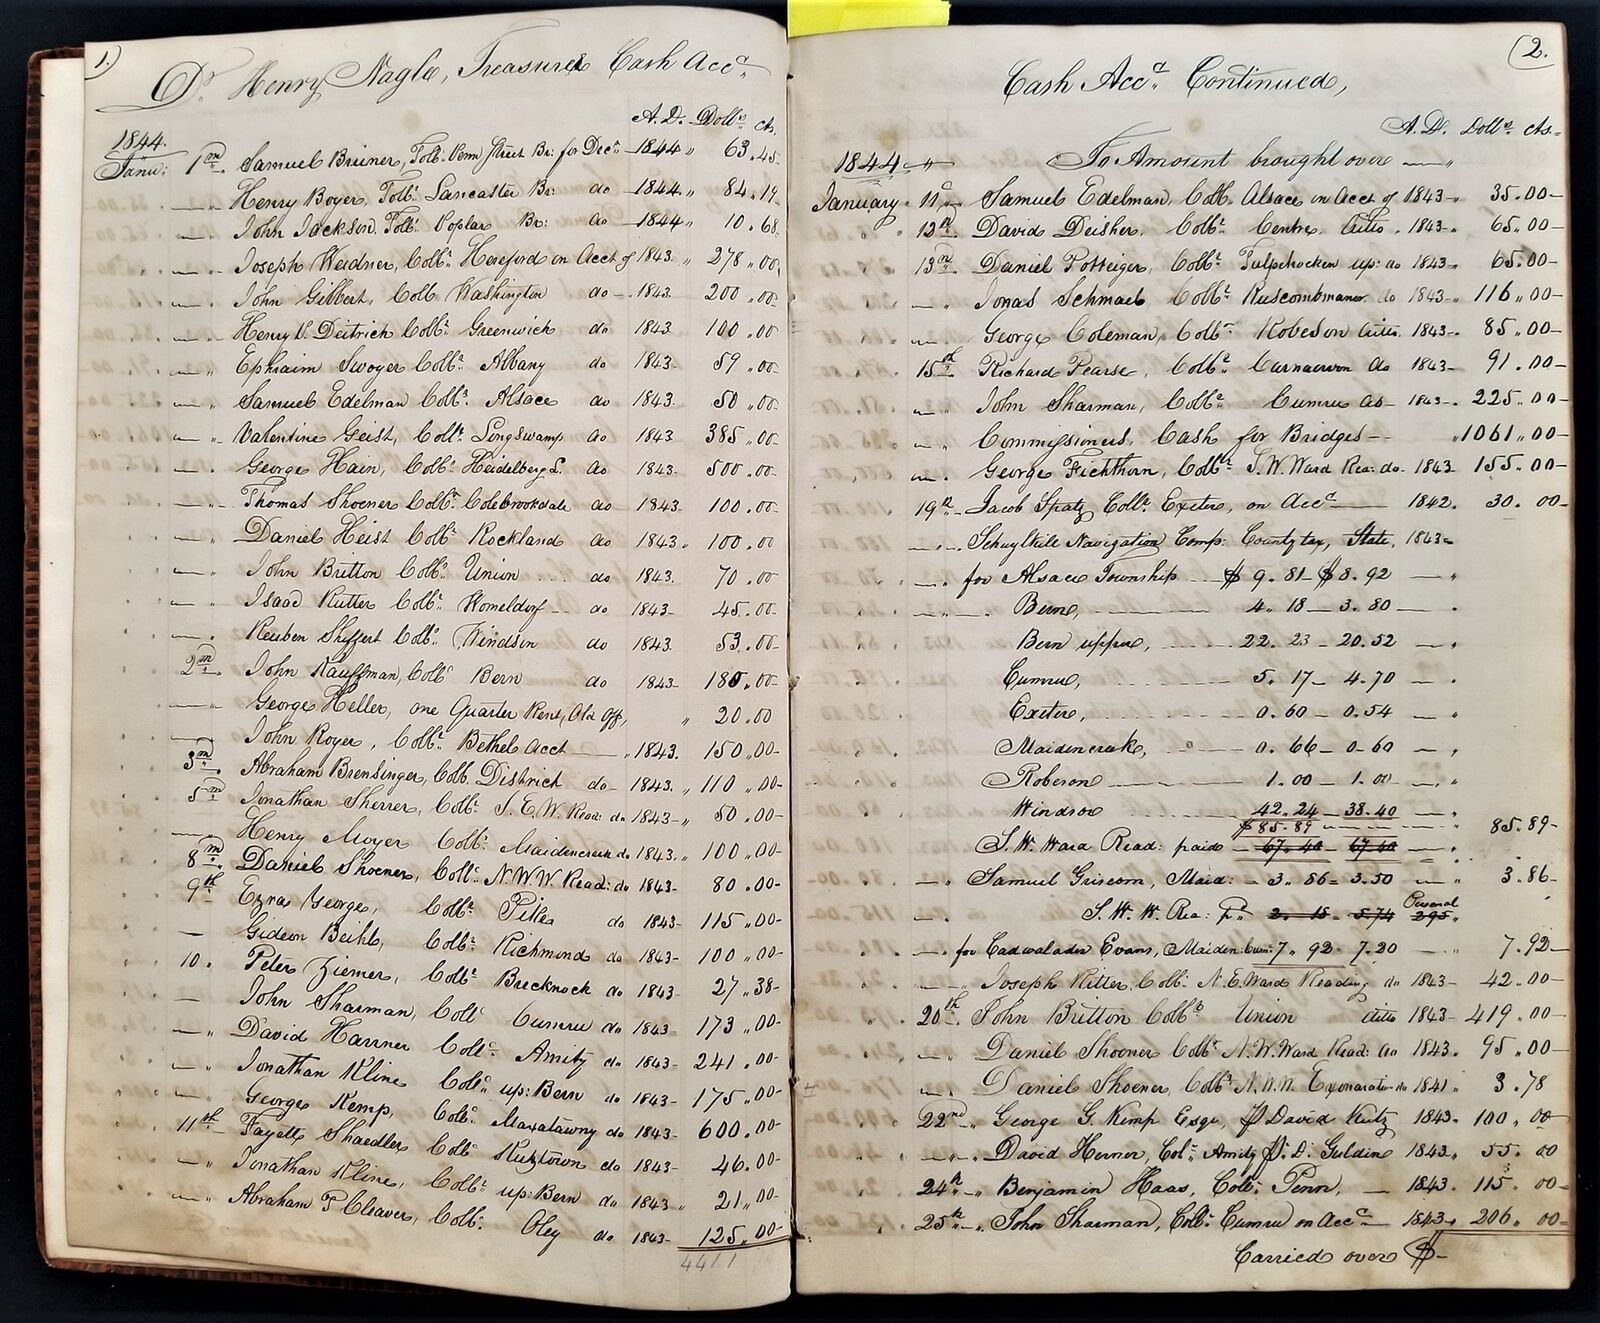 1.
Dr. Henry Nagle, Treasurer Cash Acct.
A.D. Dolls cts.
1844.
Janu: 1st. Samuel Bruner, Toll: Penn Street Br: for Decr. 1844 " 63.45
" Henry Boyer, Toll: Lancaster Br: do 1844. " 84.19
" John Jackson, Toll: Poplar Br: do 1844 " 10.68
" Joseph Weidner, Collr. Hereford on Acct of 1843. " 278.00
" John Gilbert, Coll. Washington do 1843. 200.00
" Henry V. Deitrich Collr. Greenwich do 1843 100.00
" Ephraim Swoyer Collr. Albany do 1843 59.00
" Samuel Edelman Collr. Alsace do 1843. 50.00
" Valentine Geist, Collr. Longswamp do 1843 385.00
" George Hain, Collr. Heidelberg L. do 1843 500.00
" Thomas Shoener Collr. Colebrookdale do 1843 100.00
" Daniel Heist Collr. Rockland do 1843. 100.00
" John Britton Collr. Union do 1843. 70.00
" Isaac Rutter Collr. Womelsdorf do 1843 45.00
" Reuben Shiffert Collr. Windsor do 1843 53.00
2nd. John Kauffman, Collr. Bern do 1843 185.00
" George Heller, one Quarter Rent, Old Off, " 20.00
" John Royer, Collr. Bethel Acct " 1843. 150.00
3rd. Abraham Brensinger, Coll. District do 1843. " 110.00
5th. Jonathan Sherrer, Collr. S.E.W. Read: do 1843 " 50.00
Henry Moyer Collr. Maidencreek do 1843. " 100.00
8th. Daniel Shoener, Collr. N.W.W. Read: do 1843 80.00
9th Ezra George, Collr. Pike do 1843 115.00
Gideon Beihl, Collr. Richmond do 1843 100.00
10. Peter Ziemer, Collr. Brecknock do 1843 27.38
John Sharman, Collr Cumru do 1843 173.00
" David Harner Collr. Amity do 1843 241.00
" Jonathan Kline Collr. up: Bern do 1843 175.00
" George Kemp, Collr. Maxatawny do 1843 600.00
11th Fayette Shaedler Collr. Kutztown do 1843 46.00
" Jonathan Kline, Collr. up: Bern do 1843 " 21.00
" Abraham P Cleaver, Collr. Oley do 1843 125.00
2.
Cash Acct. Continued,
A.D. Dolls. cts.
1844 " To Amount brought over "
January 11th Samuel Edelman, Coll. Alsace on Acct of 1843 35.00
12th. David Deisher, Collr. Centre, ditto. 1843 65.00
13th. Daniel Potteiger, Collr. Tulpehocken up: do 1843 65.00
" Jonas Schmael Collr. Ruscombmanor do 1843 116.00
" George Coleman, Collr. Robeson ditto 1843. 85.00
15th. Richard Pearse, Collr. Carnaervon do 1843 91.00
" John Sharman, Collr. Cumru do 1843. 225.00
" Commissioners, Cash for Bridges " 1061.00
" George Fichthorn, Collr. S.W. Ward Rea: do. 1843 155.00
19th Jacob Spatz Collr. Exeter, on Acct 1842. 30.00
" Schuylkill Navigation Comp: County tax, State, 1843
" for Alsace Township $9.81 $8.92 "
" Bern, 4.18 3.80 "
Bern upper, 22.23 20.52 "
Cumru, 5.17 4.70 "
Exeter, 0.60 0.54 "
Maidencreek, 0.66 0.60 "
Robeson 1.00 1.00 "
Windsor 42.24 38.40 "
$85.89 85.89
S.W. Ward Read: paid 67.40 67.40 "
" Samuel Griscom, Maid: 3.86 3.50 " 3.86
S. W. W. Rea: pd 2.15 5.74 Personal 295 "
" for Cadwalader Evans, Maiden: 7.92 7.20 " 7.92
" Joseph Ritter, Collr. N.E. Ward Reading do 1843 42.00
20th. John Britton Collr Union ditto 1843 419.00
" Daniel Shoener Collr. N.W. Ward Read: do 1843. 95.00
" Daniel Shoener, Collr. N.W.W. Exonaration do 1841 " 3.78
22nd " George G. Kemp Esqr, p David Kutz 1843. 100.00
" David Herner, Colr. Amity p. D. Guldin 1843. 55.00
24th " Benjamin Haas, Collr: Penn, 1843. 115.00
25th " John Sharman, Collr: Cumru on Acct 1843 206.00
Carried over $